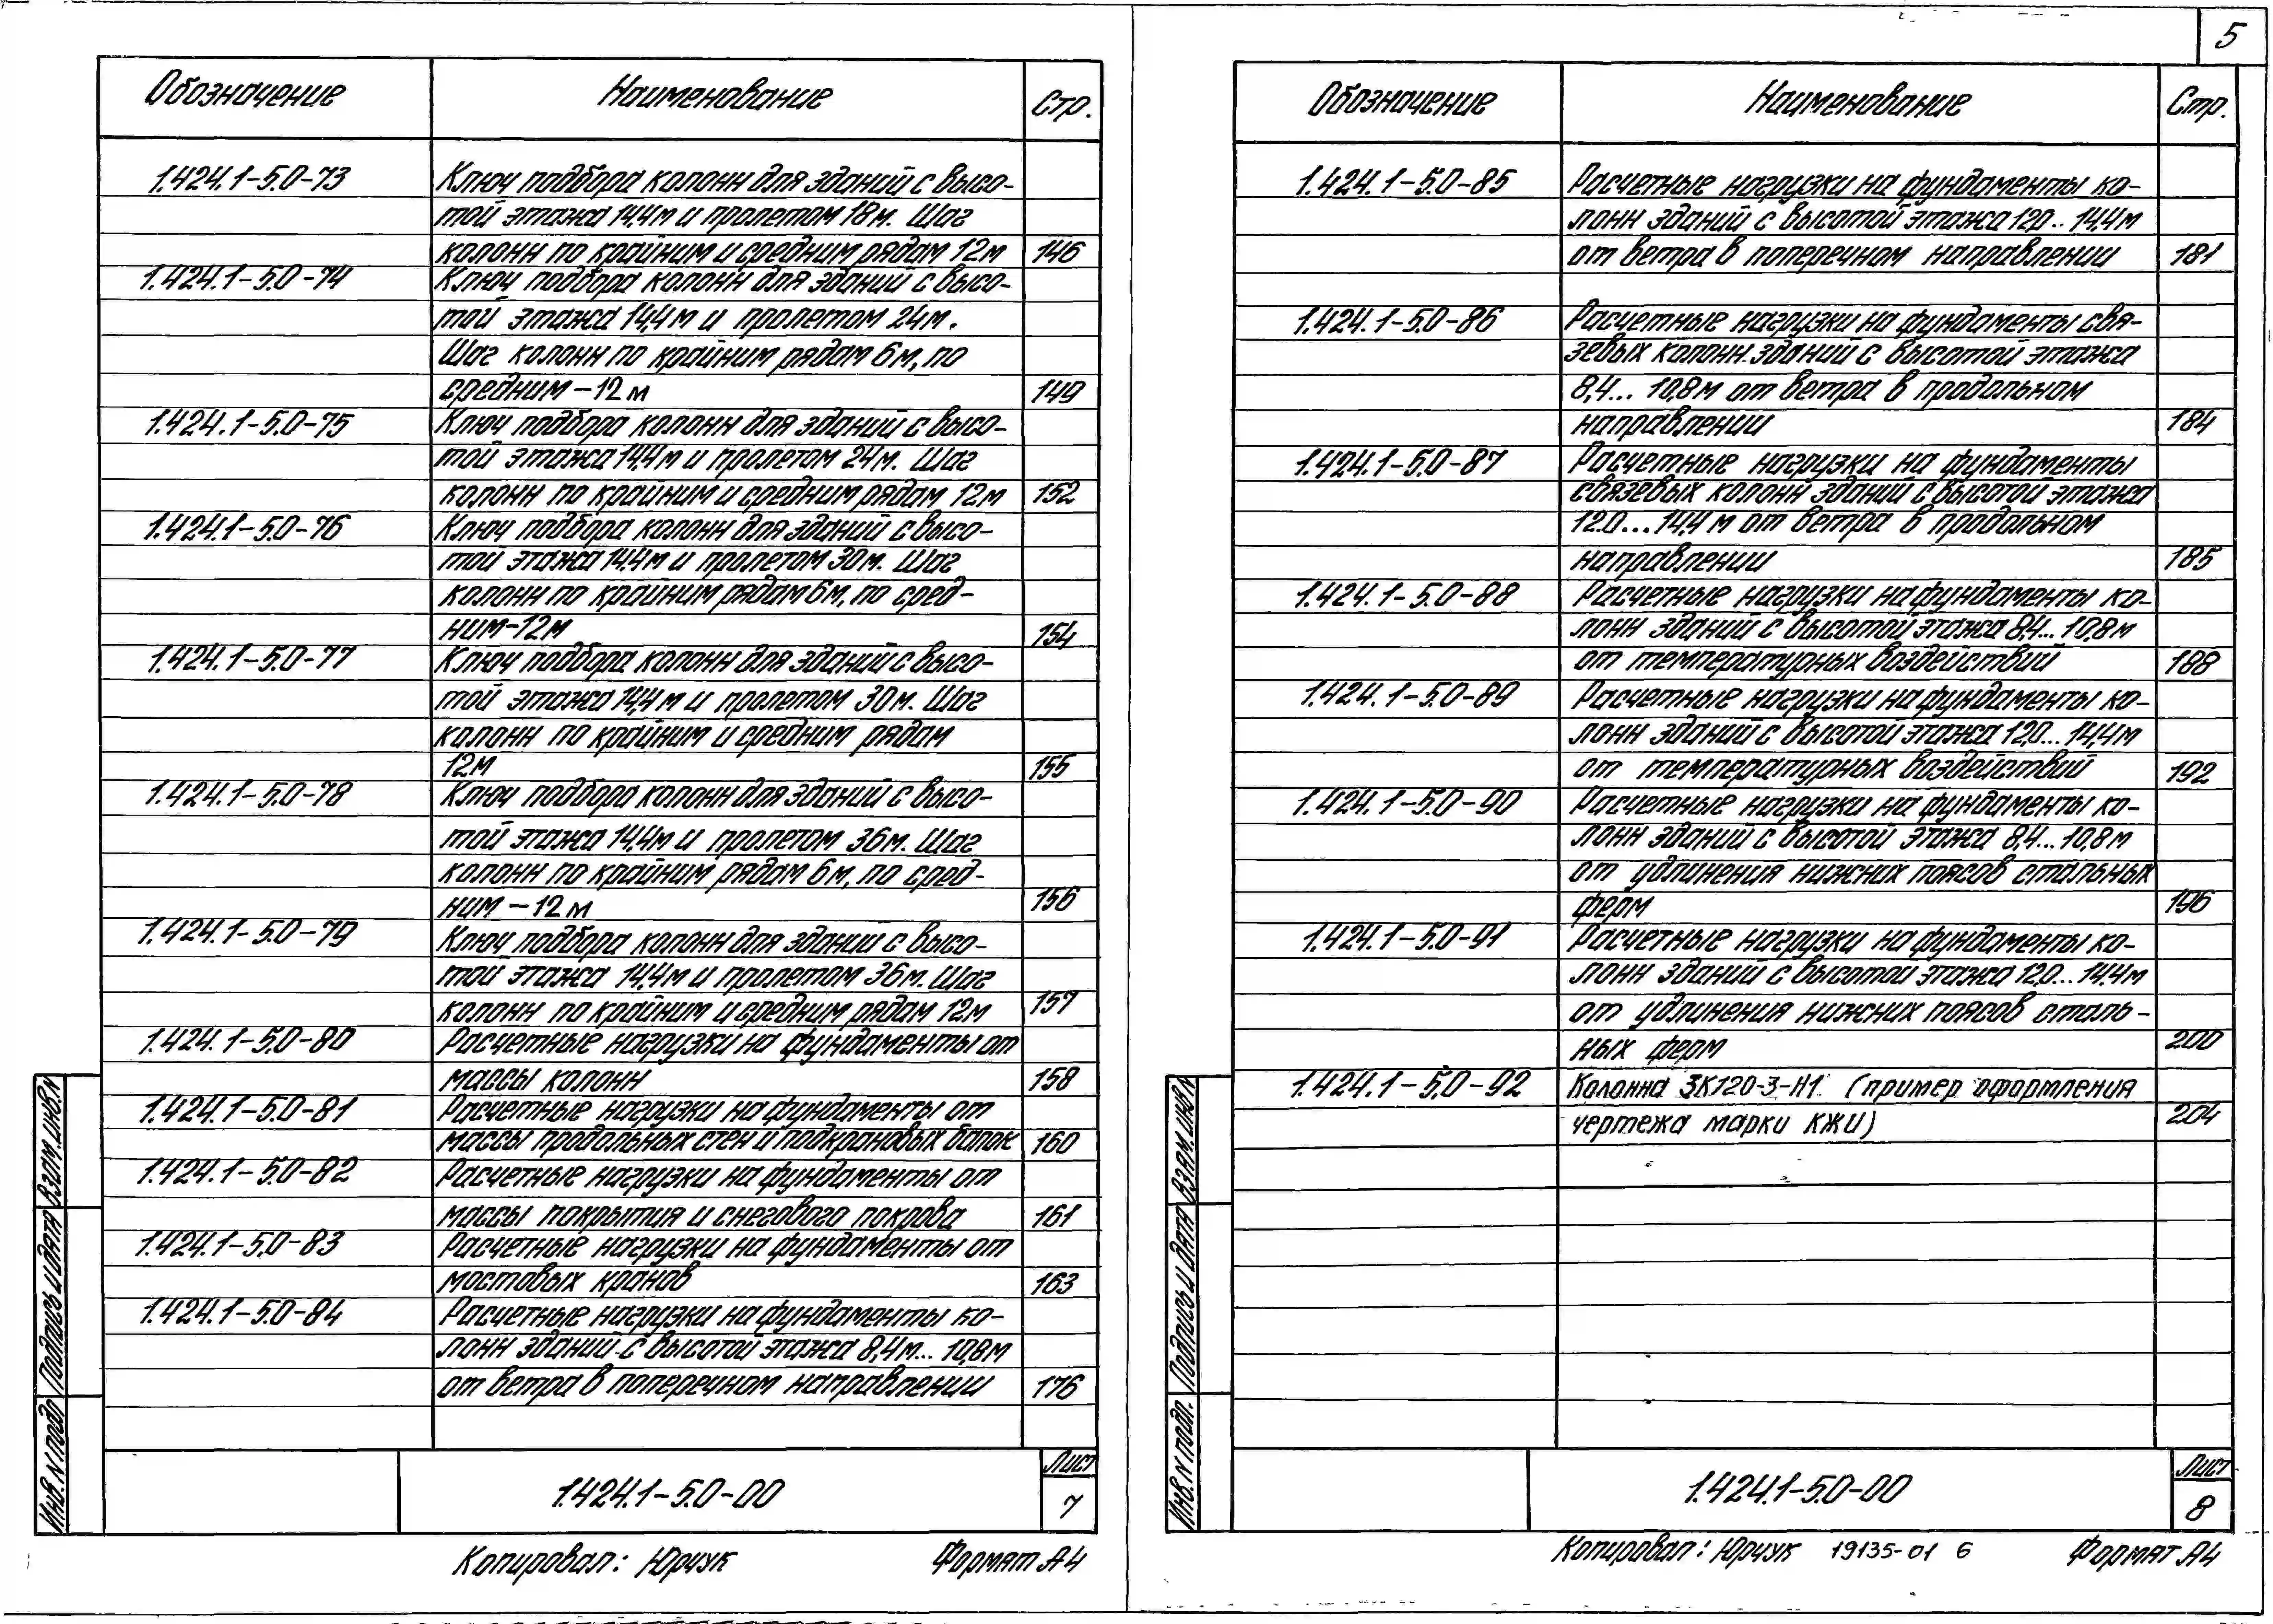 5
Обозначение Наименование Стр.
1.424.1-5.0-73 Ключ подбора колонн для зданий с высо-
той этажа 14,4м и пролетом 18м. Шаг
колонн по крайним и средним рядам 12м 146
1.424.1-5.0-74 Ключ подбора колонн для зданий с высо-
той этажа 14,4м и пролетом 24м.
Шаг колонн по крайним рядам 6м, по
средним-12м 149
1.424.1-5.0-75 Ключ подбора колонн для зданий с высо-
той этажа 14,4м и пролетом 24м. Шаг
колонн по крайним и средним рядам 12м 152
1.424.1-5.0-76 Ключ подбора колонн для зданий с высо-
той этажа 14,4м и пролетом 30м. Шаг
колонн по крайним рядам 6м, по сред-
ним-12м 154
1.424.1-5.0-77 Ключ подбора колонн для зданий с высо-
той этажа 14,4м и пролетом 30м. Шаг
колонн по крайним и средним рядам
12м 155
1.424.1-5.0-78 Ключ подбора колонн для зданий с высо-
той этажа 14,4м и пролетом 36м. Шаг
колонн по крайним рядам 6м, по сред-
ним-12м 156
1.424.1-5.0-79 Ключ подбора колонн для зданий с высо-
той этажа 14,4м и пролетом 36м. Шаг
колонн по крайним и средним рядам 12м 157
1.424.1-5.0-80 Расчетные нагрузки на фундаменты от
массы колонн 158
1.424.1-5.0-81 Расчетные нагрузки на фундаменты от
массы продольных стен и подкрановых балок 160
1.424.1-5.0-82 Расчетные нагрузки на фундаменты от
массы покрытия и снегового покрова 161
1.424.1-5.0-83 Расчетные нагрузки на фундаменты от
мостовых кранов 163
1.424.1-5.0-84 Расчетные нагрузки на фундаменты ко-
лонн зданий с высотой этажа 8,4м... 10,8м
от ветра в поперечном направлении 176
Инв. N подл. Подпись и дата Взам. инв. N
1.424.1-5.0-00
Лист
7
Копировал: Юрчук Формат А4
Обозначение Наименование Стр.
1.424.1-5.0-85 Расчетные нагрузки на фундаменты ко-
лонн зданий с высотой этажа 12,0.. 14,4м
от ветра в поперечном направлении 181
1.424.1-5.0-86 Расчетные нагрузки на фундаменты свя-
зевых колонн зданий с высотой этажа
8,4... 10,8м от ветра в продольном
направлении 184
1.424.1-5.0-87 Расчетные нагрузки на фундаменты
связевых колонн зданий с высотой этажа
12.0...14,4 м от ветра в продольном
направлении 185
1.424.1-5.0-88 Расчетные нагрузки на фундаменты ко-
лонн зданий с высотой этажа 8,4... 10,8м
от температурных воздействий 188
1.424.1-5.0-89 Расчетные нагрузки на фундаменты ко-
лонн зданий с высотой этажа 12,0... 14,4м
от температурных воздействий 192
1.424.1-5.0-90 Расчетные нагрузки на фундаменты ко-
лонн зданий с высотой этажа 8,4...10,8м
от удлинения нижних поясов стальных
ферм 196
1.424.1-5.0-91 Расчетные нагрузки на фундаменты ко-
лонн зданий с высотой этажа 12,0...14.4м
от удлинения нижних поясов сталь-
ных ферм 200
1.424.1-5.0-92 Колонна 3К120-3-Н1 (пример оформления
чертежа марки КЖИ) 204
Инв. N подл. Подпись и дата Взам. инв. N
1.424.1-5.0-00
Лист
8
Копировал: Юрчук 19135-01 6 Формат А4